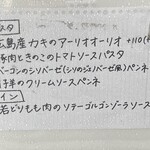 パスタ
広島産カキのアーリオオーリオ +110(
豚肉ときのこのトマトソースパスタ
ベーコンのシリバーゼ(シソのジェノバーゼ風)ペンネ
洋のクリームソースペンネ
イン
若どりもも肉のソテーゴルゴンゾーラソース